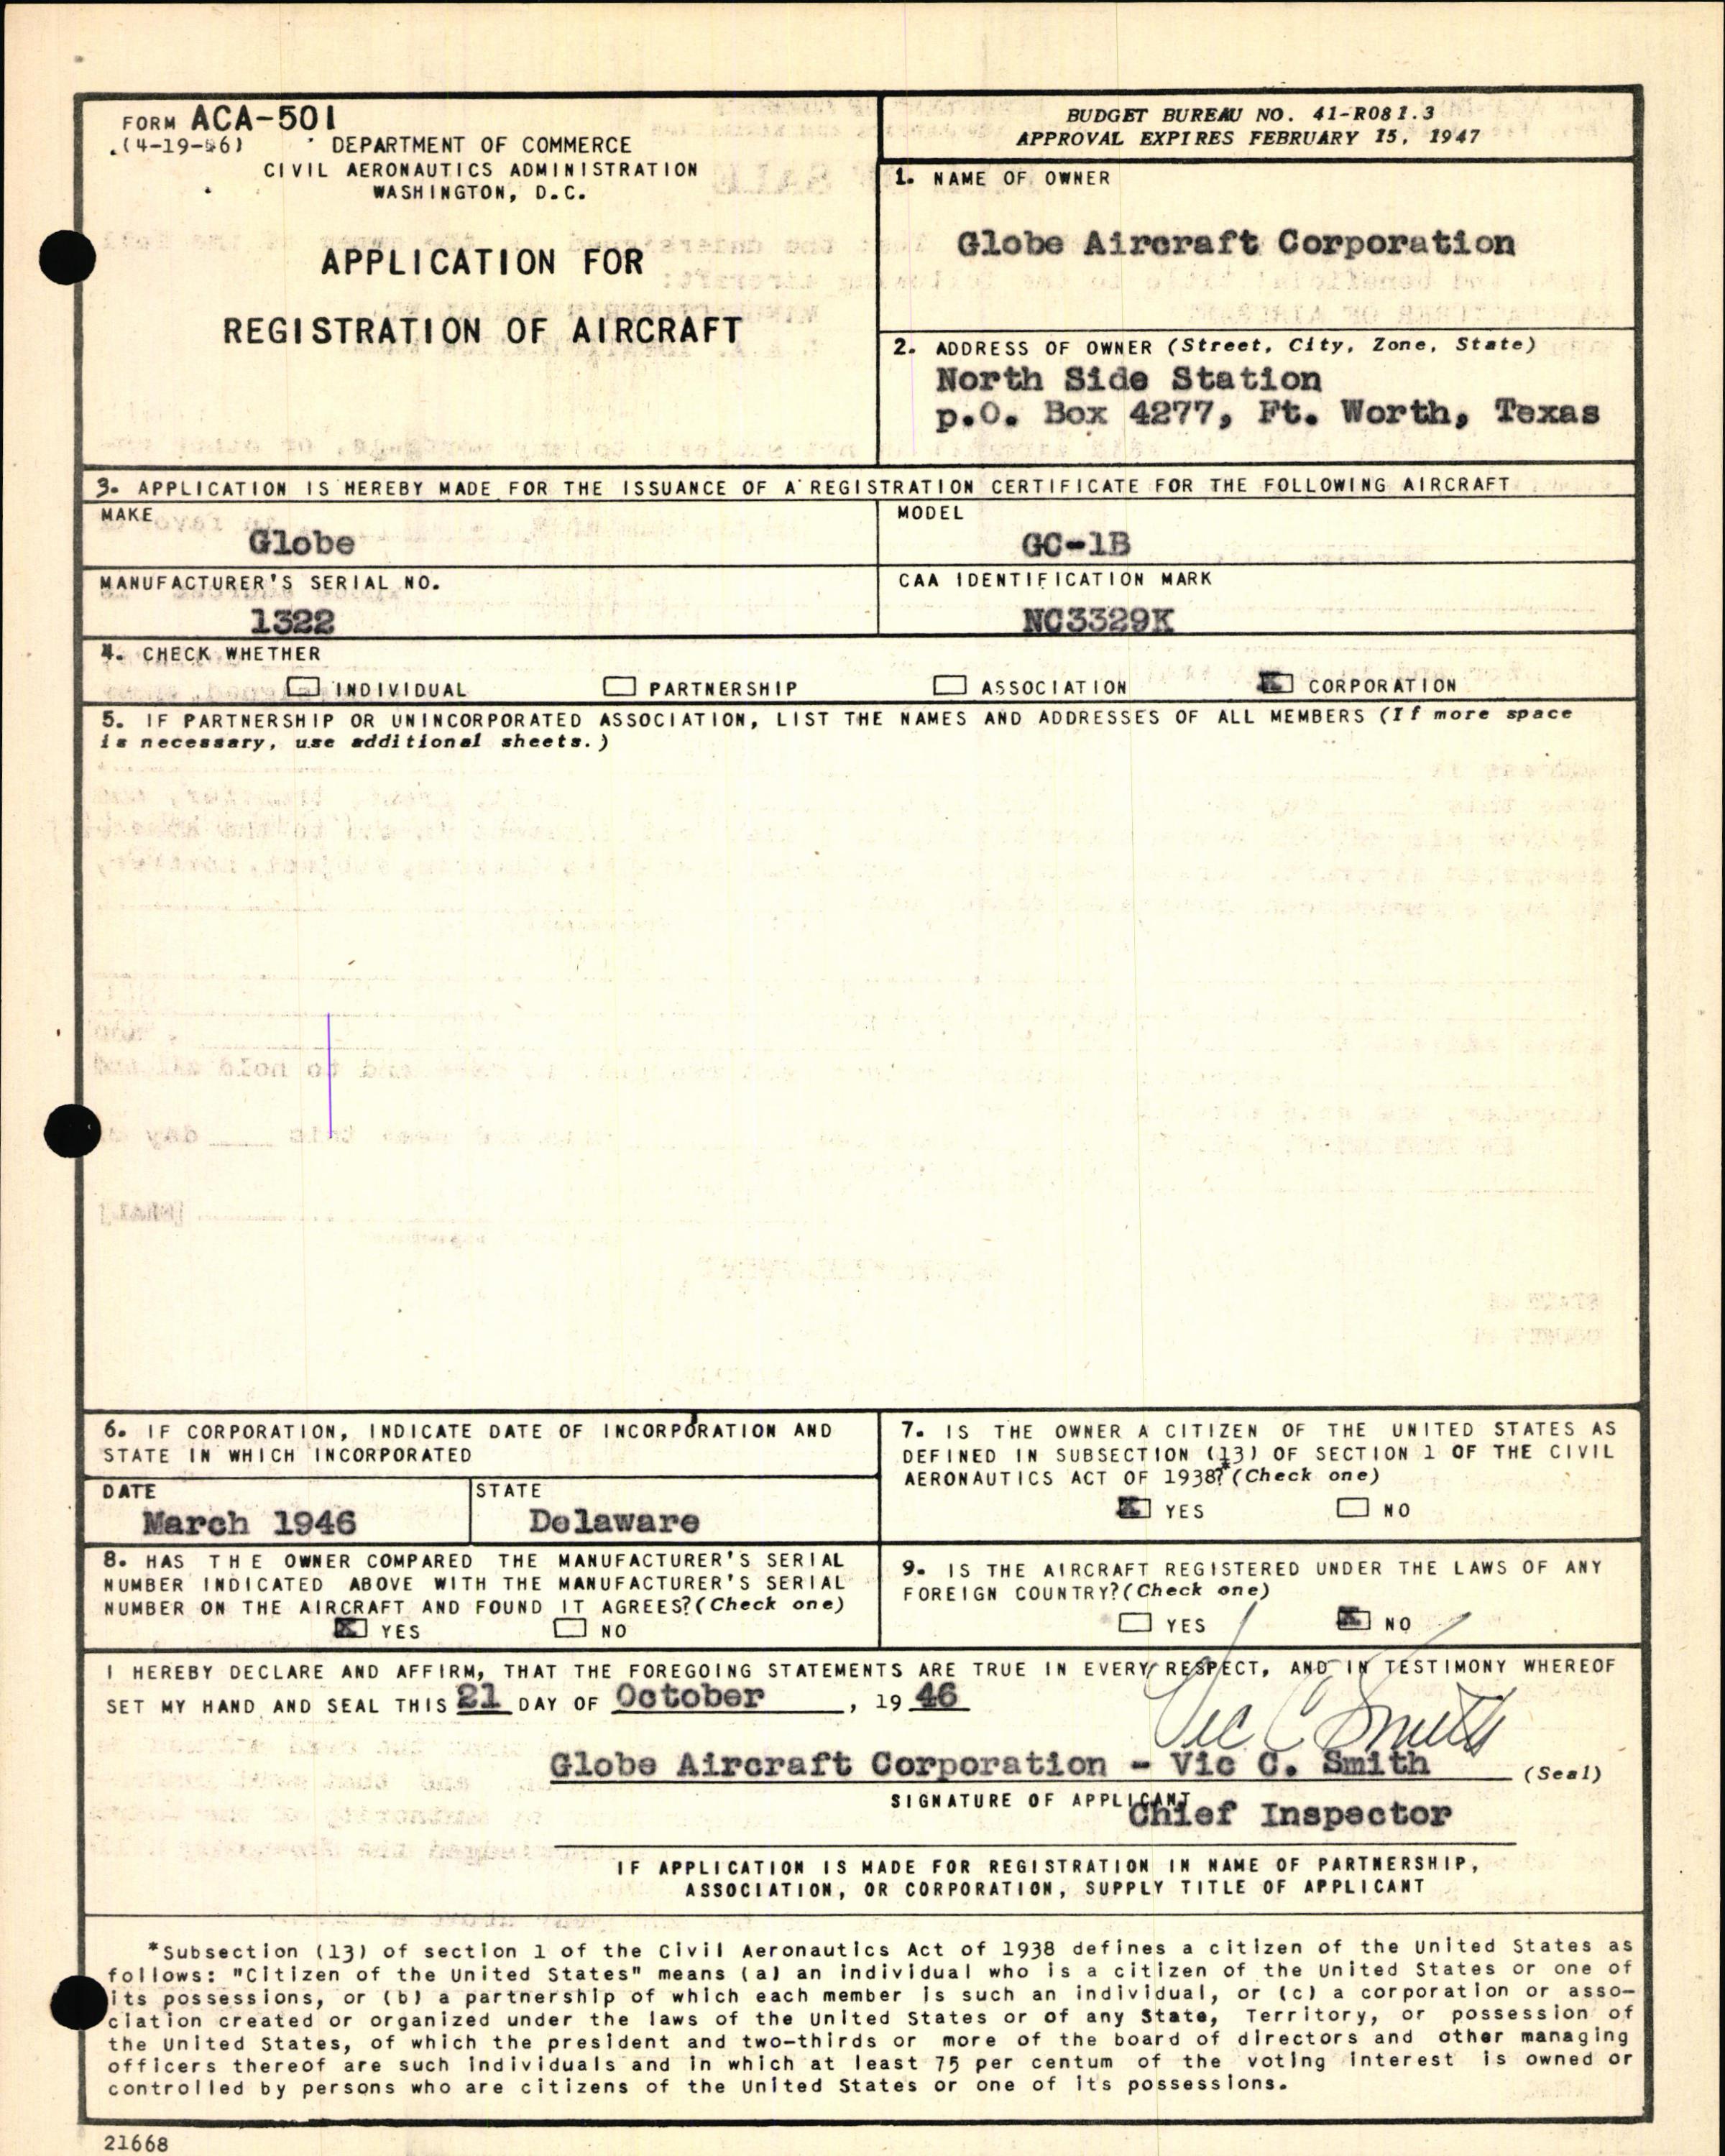 FORM ACA-501
(4-19-46)
DEPARTMENT OF COMMERCE
CIVIL AERONAUTICS ADMINISTRATION
WASHINGTON, D.C.
APPLICATION FOR
REGISTRATION OF AIRCRAFT
BUDGET BUREAU NO. 41-R081.3
APPROVAL EXPIRES FEBRUARY 15, 1947
1. NAME OF OWNER
Globe Aircraft Corporation
2. ADDRESS OF OWNER (Street, City, Zone, State)
North Side Station
p.O. Box 4277, Ft. Worth, Texas
3. APPLICATION IS HEREBY MADE FOR THE ISSUANCE OF A REGISTRATION CERTIFICATE FOR THE FOLLOWING AIRCRAFT
MAKE
Globe
MODEL
GC-1B
MANUFACTURER'S SERIAL NO.
1322
CAA IDENTIFICATION MARK
NC3329K
4. CHECK WHETHER
INDIVIDUAL PARTNERSHIP ASSOCIATION X CORPORATION
5. IF PARTNERSHIP OR UNINCORPORATED ASSOCIATION, LIST THE NAMES AND ADDRESSES OF ALL MEMBERS (If more space
is necessary, use additional sheets.)
6. IF CORPORATION, INDICATE DATE OF INCORPORATION AND
STATE IN WHICH INCORPORATED
DATE
March 1946
STATE
Delaware
7. IS THE OWNER A CITIZEN OF THE UNITED STATES AS
DEFINED IN SUBSECTION (13) OF SECTION 1 OF THE CIVIL
AERONAUTICS ACT OF 1938?* (Check one)
X YES NO
8. HAS THE OWNER COMPARED THE MANUFACTURER'S SERIAL
NUMBER INDICATED ABOVE WITH THE MANUFACTURER'S SERIAL
NUMBER ON THE AIRCRAFT AND FOUND IT AGREES? (Check one)
X YES NO
9. IS THE AIRCRAFT REGISTERED UNDER THE LAWS OF ANY
FOREIGN COUNTRY? (Check one)
YES X NO
I HEREBY DECLARE AND AFFIRM, THAT THE FOREGOING STATEMENTS ARE TRUE IN EVERY RESPECT, AND IN TESTIMONY WHEREOF
SET MY HAND AND SEAL THIS 21 DAY OF October, 19 46
Vic C Smith
Globe Aircraft Corporation - Vic C. Smith (Seal)
SIGNATURE OF APPLICANT
Chief Inspector
IF APPLICATION IS MADE FOR REGISTRATION IN NAME OF PARTNERSHIP,
ASSOCIATION, OR CORPORATION, SUPPLY TITLE OF APPLICANT
*Subsection (13) of section 1 of the Civil Aeronautics Act of 1938 defines a citizen of the United States as
follows: "Citizen of the United States" means (a) an individual who is a citizen of the United States or one of
its possessions, or (b) a partnership of which each member is such an individual, or (c) a corporation or asso-
ciation created or organized under the laws of the United States or of any State, Territory, or possession of
the United States, of which the president and two-thirds or more of the board of directors and other managing
officers thereof are such individuals and in which at least 75 per centum of the voting interest is owned or
controlled by persons who are citizens of the United States or one of its possessions.
21668